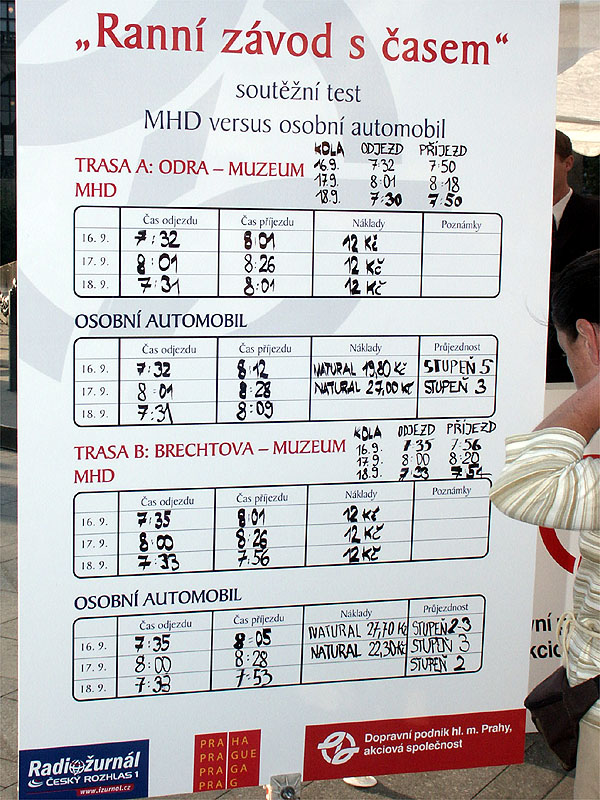 „Ranní závod s časem“
soutěžní test
MHD versus osobní automobil
KOLA ODJEZD PŘÍJEZD
16.9. 7:32 7:50
17.9. 8:01 8:18
18.9. 7:30 7:50
TRASA A: ODRA – MUZEUM
MHD
Čas odjezdu Čas příjezdu Náklady Poznámky
16. 9. 7:32 8:01 12 Kč
17. 9. 8:01 8:26 12 Kč
18. 9. 7:31 8:01 12 Kč
OSOBNÍ AUTOMOBIL
Čas odjezdu Čas příjezdu Náklady Průjezdnost
16. 9. 7:32 8:12 NATURAL 19,80 Kč STUPEŇ 5
17. 9. 8:01 8:28 NATURAL 27,00 Kč STUPEŇ 3
18. 9. 7:31 8:09
KOLA ODJEZD PŘÍJEZD
16.9. 7:35 7:56
17.9. 8:00 8:20
18.9. 7:33
TRASA B: BRECHTOVA – MUZEUM
MHD
Čas odjezdu Čas příjezdu Náklady Poznámky
16. 9. 7:35 8:01 12 Kč
17. 9. 8:00 8:26 12 Kč
18. 9. 7:33 7:56 12 Kč
OSOBNÍ AUTOMOBIL
Čas odjezdu Čas příjezdu Náklady Průjezdnost
16. 9. 7:35 8:05 NATURAL 27,70 Kč STUPEŇ 2-3
17. 9. 8:00 8:28 NATURAL 22,30 Kč STUPEŇ 3
18. 9. 7:33 7:53 STUPEŇ 2
Radiožurnál
ČESKÝ ROZHLAS 1
www.izurnal.cz
PRA HA
PRA GUE
PRA GA
PRA G
Dopravní podnik hl. m. Prahy,
akciová společnost